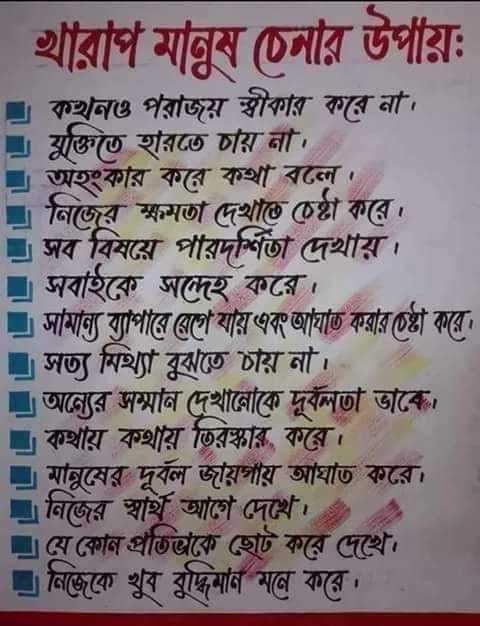 খারাপ মানুষ চেনার উপায়ঃ
কখনও পরাজয় স্বীকার করে না।
যুক্তিতে হারতে চায় না।
অহংকার করে কথা বলে।
নিজের ক্ষমতা দেখাতে চেষ্টা করে।
সব বিষয়ে পারদর্শিতা দেখায়।
সবাইকে সন্দেহ করে।
সামান্য ব্যাপারে রেগে যায় এবং আঘাত করার চেষ্টা করে।
সত্য মিথ্যা বুঝতে চায় না।
অন্যের সম্মান দেখানোকে দূর্বলতা ভাবে।
কথায় কথায় তিরস্কার করে।
মানুষের দূর্বল জায়গায় আঘাত করে।
নিজের স্বার্থ আগে দেখে।
যে কোন প্রতিভাকে ছোট করে দেখে।
নিজেকে খুব বুদ্ধিমান মনে করে।